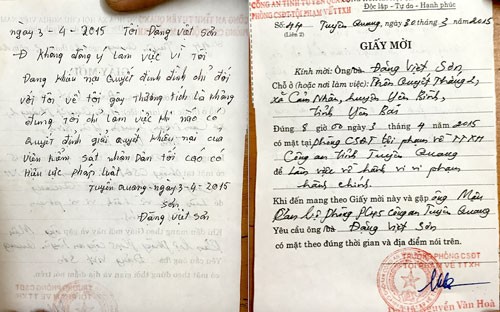 ngày 3 - 4 - 2015 Tôi Đặng Việt Sơn
Không đồng ý làm việc vì tôi
Đang khiếu nại Quyết định đình chỉ đối
với tôi về tội gây thương tích là không
đúng. Tôi chỉ làm việc khi nào có
Quyết định giải quyết khiếu nại của
Viện kiểm sát nhân Dân tối cao có
Hiệu lực pháp luật
Tuyên Quang - ngày 3 - 4 - 2015
Sơn
Đặng Việt Sơn
CÔNG AN TỈNH TUYÊN QUANG
PHÒNG CSĐT TỘI PHẠM VỀ TTXH
Độc lập - Tự do - Hạnh phúc
Số: 44
Tuyên Quang, ngày 30 tháng 3 năm 2015
(Liên 2)
GIẤY MỜI
Kính mời: Ông/bà Đặng Việt Sơn
Chỗ ở (hoặc nơi làm việc): Thôn Quyết Thắng 2,
xã Cảm Nhân, huyện Yên Bình,
tỉnh Yên Bái
Đúng 8 giờ 00 ngày 3 tháng 4 năm 2015
có mặt tại phòng CSĐT tội phạm về TTXH
Công an tỉnh Tuyên Quang
để Làm việc về hành vi vi phạm
hành chính.
Khi đến mang theo Giấy mời này và gặp ông Mận
Cán bộ phòng PC45 công an Tuyên Quang
Yêu cầu ông/bà Đặng Việt Sơn
có mặt theo đúng thời gian và địa điểm nói trên.
TRƯỞNG PHÒNG CSĐT
TỘI PHẠM VỀ TTXH
Nguyễn Văn Hoà